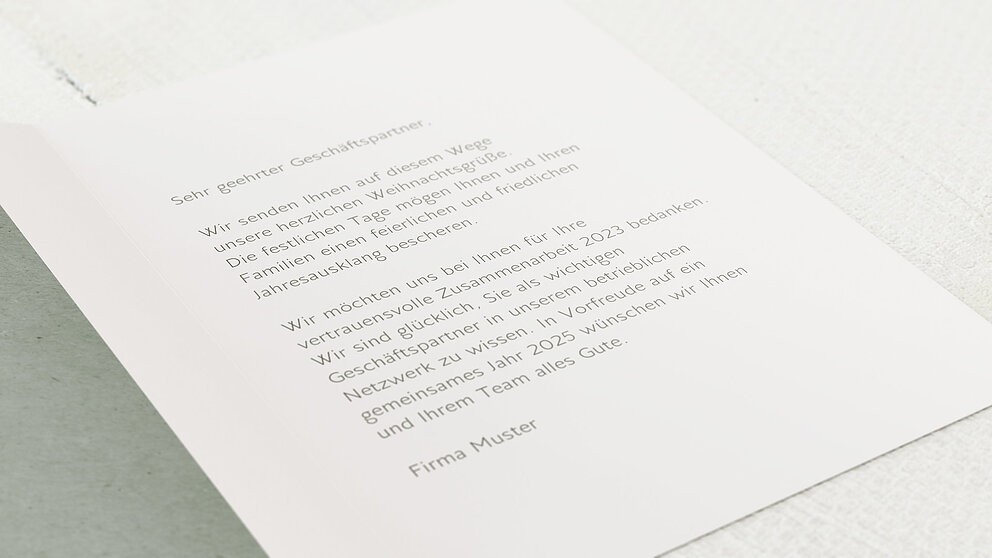 Sehr geehrter Geschäftspartner,
Wir senden Ihnen auf diesem Wege
unsere herzlichen Weihnachtsgrüße.
Die festlichen Tage mögen Ihnen und Ihren
Familien einen feierlichen und friedlichen
Jahresausklang bescheren.
Wir möchten uns bei Ihnen für Ihre
vertrauensvolle Zusammenarbeit 2023 bedanken.
Wir sind glücklich, Sie als wichtigen
Geschäftspartner in unserem betrieblichen
Netzwerk zu wissen. In Vorfreude auf ein
gemeinsames Jahr 2025 wünschen wir Ihnen
und Ihrem Team alles Gute.
Firma Muster